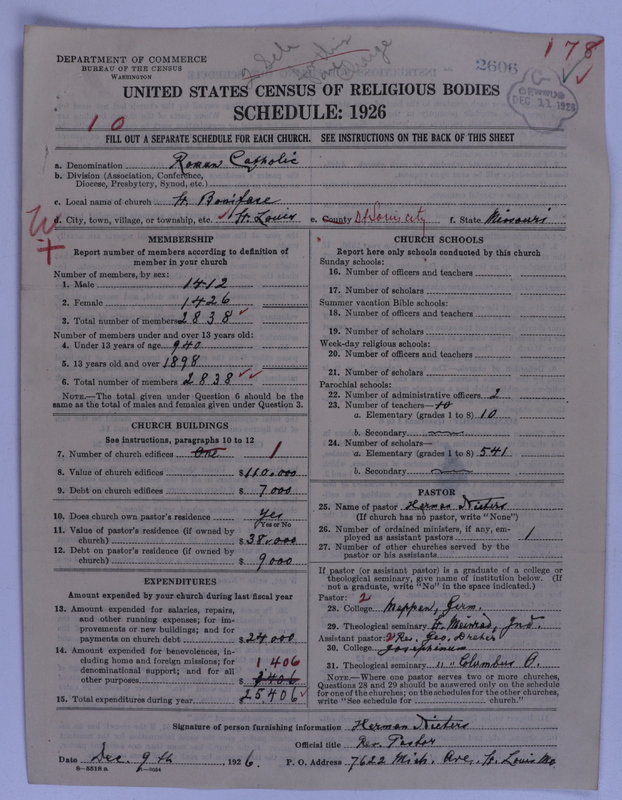 DEPARTMENT OF COMMERCE
BUREAU OF THE CENSUS
WASHINGTON
2606
178
CENSUS
DEC 11 1926
UNITED STATES CENSUS OF RELIGIOUS BODIES
SCHEDULE: 1926
10
FILL OUT A SEPARATE SCHEDULE FOR EACH CHURCH. SEE INSTRUCTIONS ON THE BACK OF THIS SHEET
a. Denomination Roman Catholic
b. Division (Association, Conference, Diocese, Presbytery, Synod, etc.)
c. Local name of church St. Boniface
d. City, town, village, or township, etc. St. Louis e. County St Louis City f. State Missouri
MEMBERSHIP
Report number of members according to definition of member in your church
Number of members, by sex:
1. Male 1412
2. Female 1426
3. Total number of members 2838
Number of members under and over 13 years old:
4. Under 13 years of age 940
5. 13 years old and over 1898
6. Total number of members 2838
NOTE.—The total given under Question 6 should be the same as the total of males and females given under Question 3.
CHURCH BUILDINGS
See instructions, paragraphs 10 to 12
7. Number of church edifices One 1
8. Value of church edifices $110.000
9. Debt on church edifices $7000
10. Does church own pastor's residence Yes
Yes or No
11. Value of pastor's residence (if owned by church) $38.000
12. Debt on pastor's residence (if owned by church) $9000
EXPENDITURES
Amount expended by your church during last fiscal year
13. Amount expended for salaries, repairs, and other running expenses; for improvements or new buildings; and for payments on church debt $24.000
14. Amount expended for benevolences, including home and foreign missions; for denominational support; and for all other purposes 1406 $
15. Total expenditures during year 25.406
CHURCH SCHOOLS
Report here only schools conducted by this church
Sunday schools:
16. Number of officers and teachers
17. Number of scholars
Summer vacation Bible schools:
18. Number of officers and teachers
19. Number of scholars
Week-day religious schools:
20. Number of officers and teachers
21. Number of scholars
Parochial schools:
22. Number of administrative officers 2
23. Number of teachers— 10
a. Elementary (grades 1 to 8) 10
b. Secondary
24. Number of scholars—
a. Elementary (grades 1 to 8) 541
b. Secondary
PASTOR
25. Name of pastor Herman Nieters
(If church has no pastor, write "None")
26. Number of ordained ministers, if any, employed as assistant pastors 1
27. Number of other churches served by the pastor or his assistants
If pastor (or assistant pastor) is a graduate of a college or theological seminary, give name of institution below. (If not a graduate, write "No" in the space indicated.)
Pastor: 2
28. College Meppen, Germ.
29. Theological seminary St. Meinrad, Ind.
Assistant pastor: 2 Rev. Geo. Dreher
30. College Josephinus
31. Theological seminary " " Columbus O.
NOTE.—Where one pastor serves two or more churches, Questions 28 and 29 should be answered only on the schedule for one of the churches; on the schedules for the other churches, write "See schedule for church."
Signature of person furnishing information Herman Nieters
Official title Rev. Pastor
Date Dec. 9th, 1926. P. O. Address 7622 Mich. Ave., St. Louis Mo.